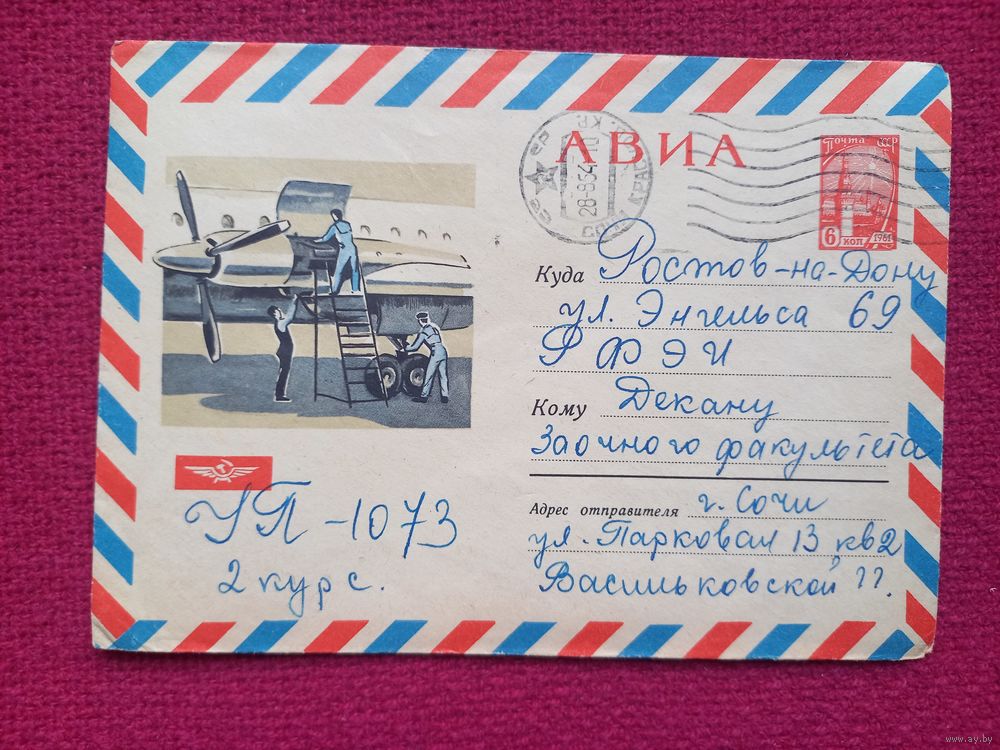 АВИА
Почта СССР
6 коп 1961
28-8.5
СОЧИ
Куда Ростов-на-Дону
ул. Энгельса 69
РФЭИ
Кому Декану
Заочного факультета
Адрес отправителя г. Сочи
ул. Парковая 13, кв 2
Васильковской
УП-1073
2 курс.
www.ay.by